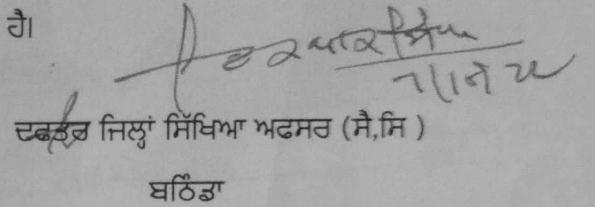 ਹੈ।
ਦਫਤਰ ਜਿਲ੍ਹਾਂ ਸਿੱਖਿਆ ਅਫਸਰ (ਸੈ,ਸਿ )
ਬਠਿੰਡਾ